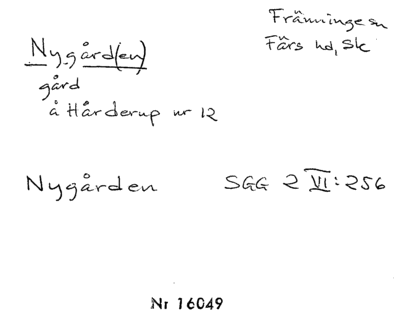 Fränninge sn
Färs hd, Sk
Nygård(en)
gård
å Hårderup nr 12
Nygården SGG 2 VI:256
Nr 16049